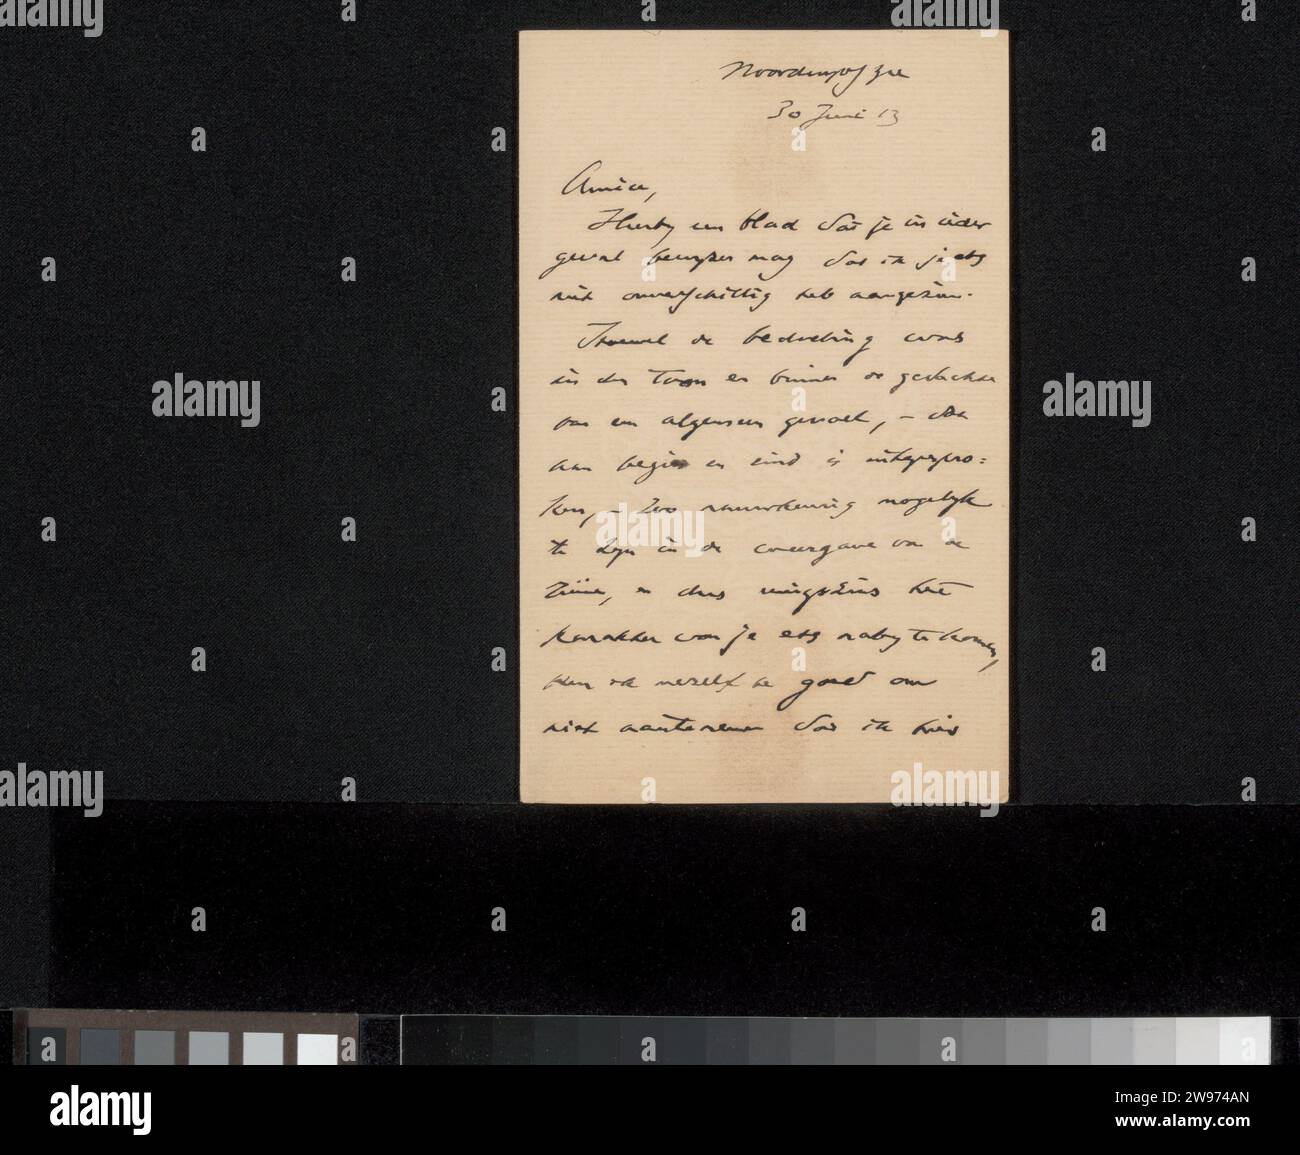 Noordwijk a/Zee
30 Juni 13
Amice,
Hierby een blad dat je in ieder
geval bewyzen mag dat ik je ets
niet onverschillig heb aangezien.
Hoewel de bedoeling was
in den toon en binnen de gedachte
van een algemeen gevoel, – dat
aan begin en eind is uitgespro=
ken, – zoo nauwkeurig mogelyk
te zyn in de weergave van de
zinnen, en dus eenigszins het
karakter van je ets naby te komen,
ken ik mezelf te goed om
niet aan te nemen dat ik hier
alamy
Image ID: 2W974AN
www.alamy.com